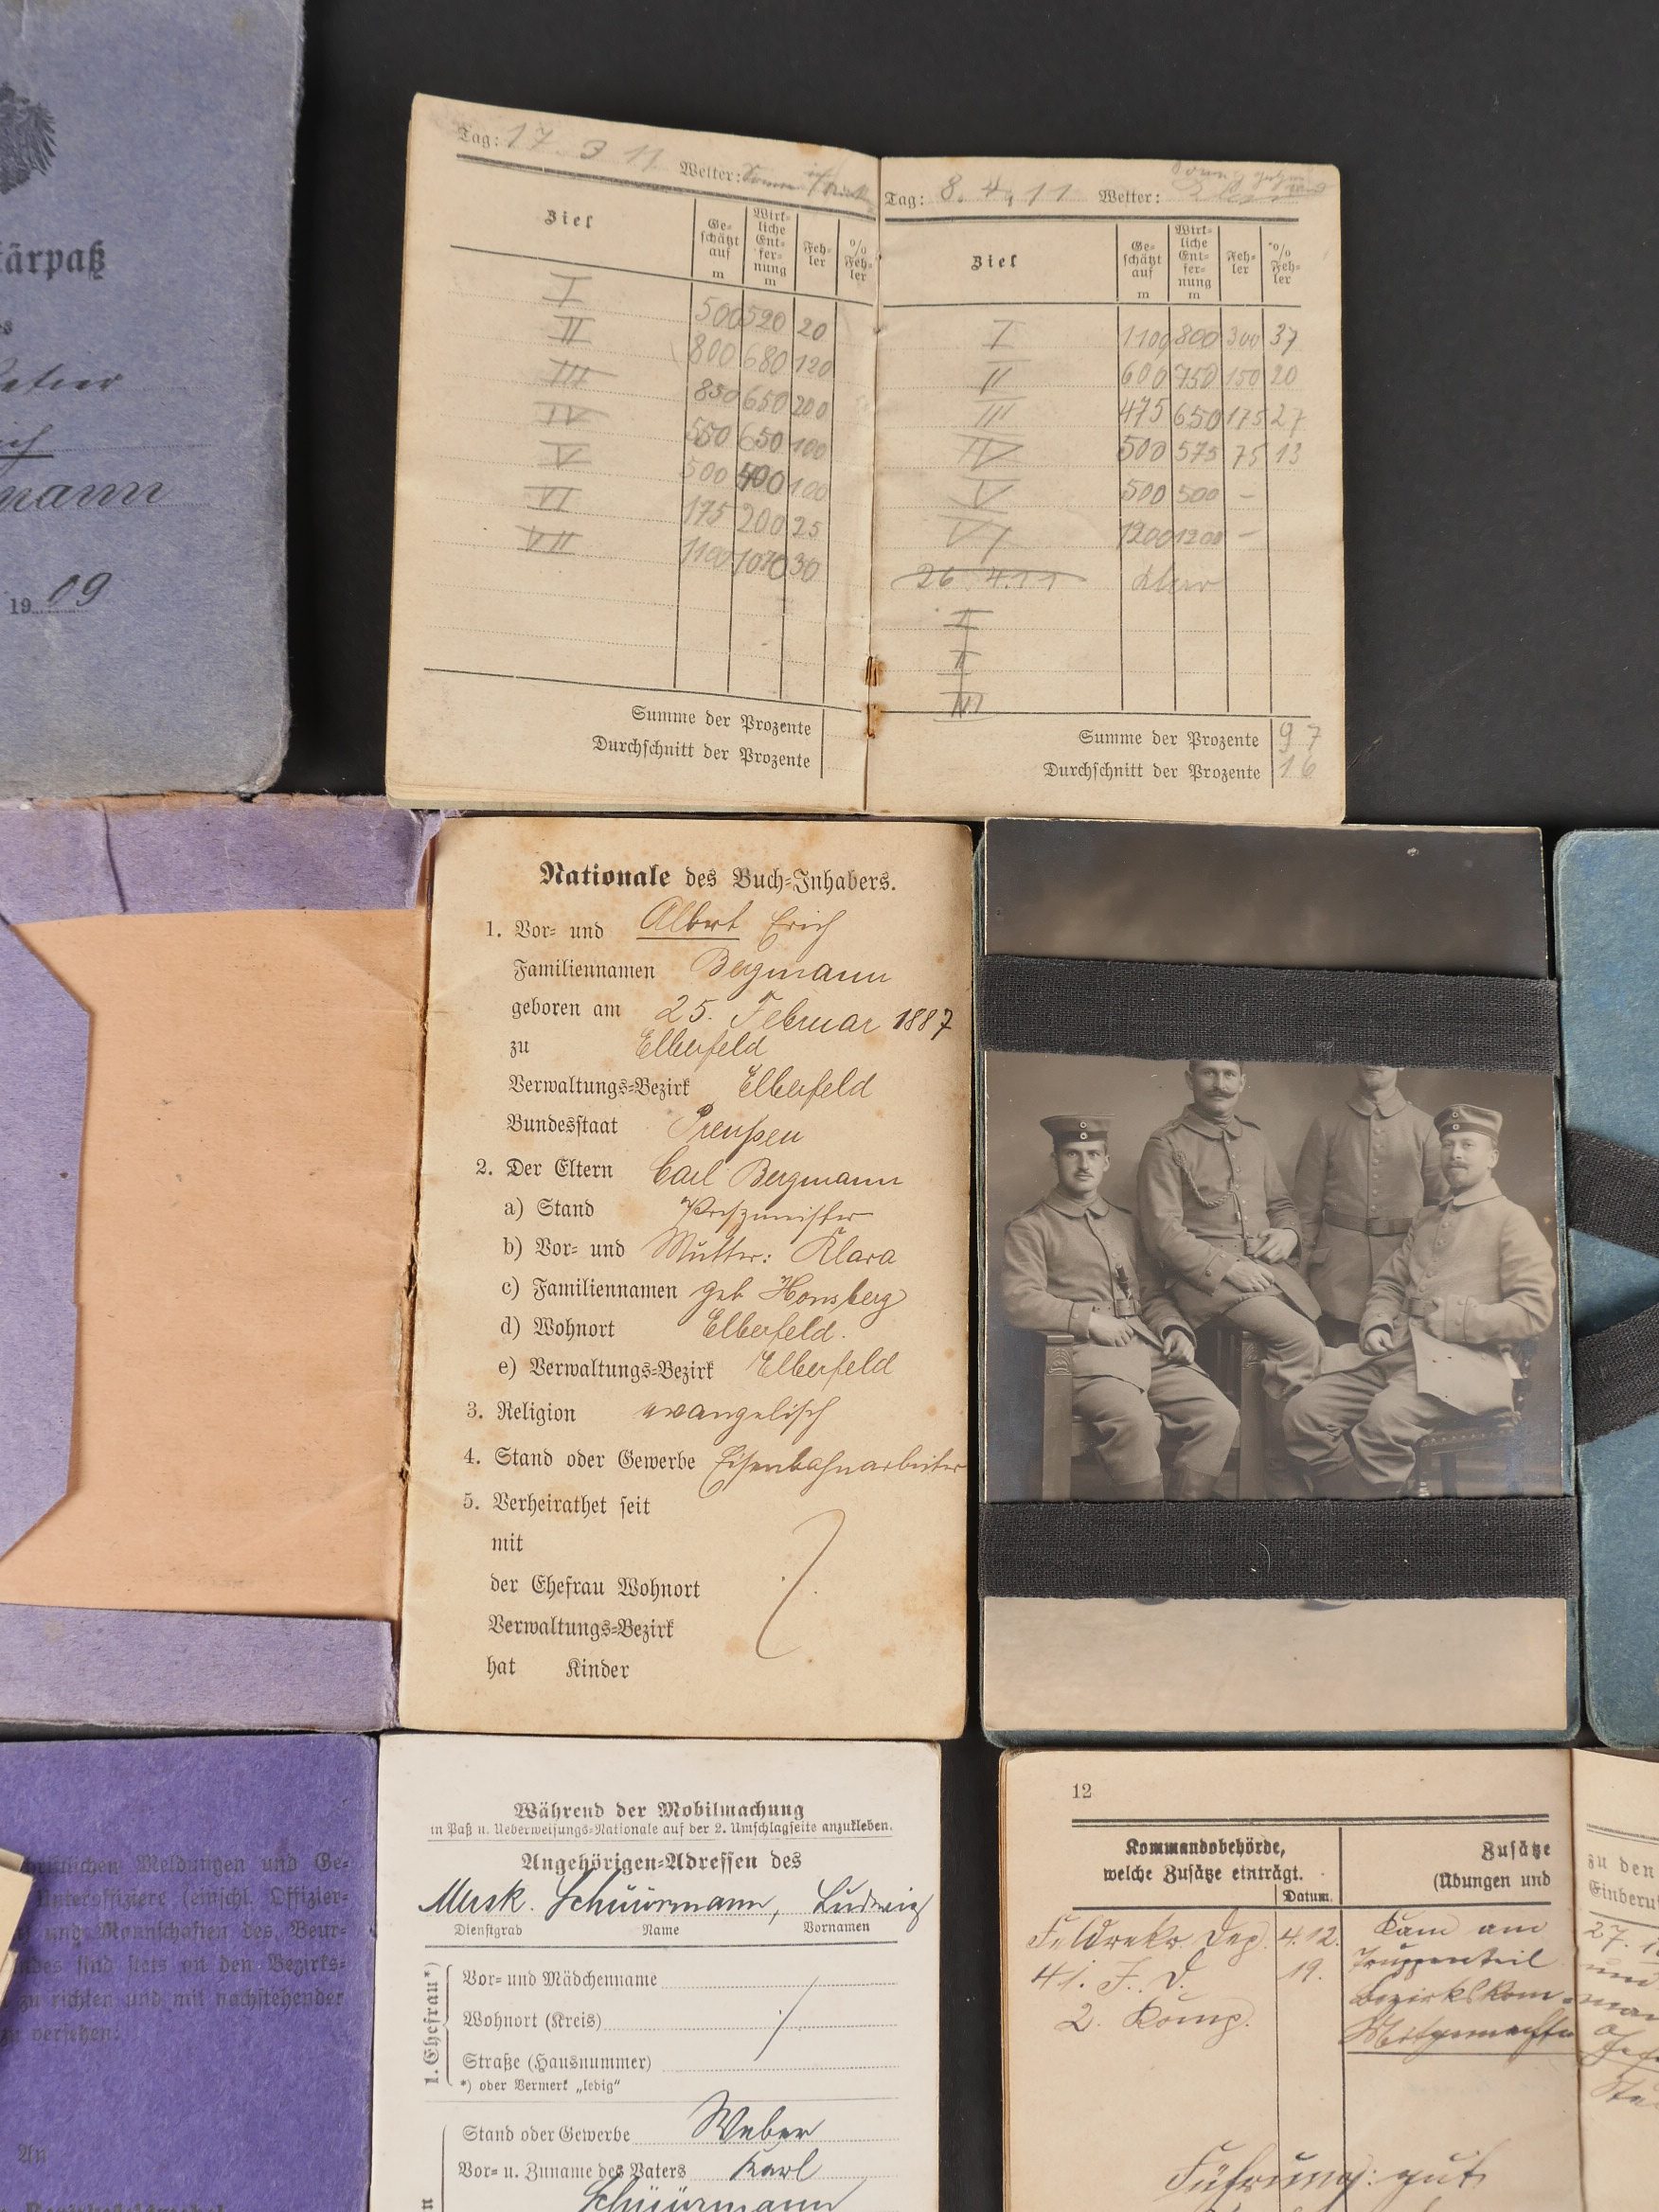 ärpaß
mann
1909
Tag: 17. 3 11 Wetter:
Ziel
Ge-
schätzt
auf
m
Wirk-
liche
Ent-
fer-
nung
m
Feh-
ler
%
Feh-
ler
I 500 520 20
II 800 680 120
III 850 650 200
IV 550 650 100
V 500 400 100
VI 175 200 25
VII 1100 1070 30
Summe der Prozente
Durchschnitt der Prozente
Tag: 8. 4. 11 Wetter:
Ziel
Ge-
schätzt
auf
m
Wirk-
liche
Ent-
fer-
nung
m
Feh-
ler
%
Feh-
ler
I 1100 800 300 37
II 600 750 150 20
III 475 650 175 27
IV 500 575 75 13
V 500 500 -
VI 1200 1200 -
26. 4.11 klar
I
II
III
Summe der Prozente 97
Durchschnitt der Prozente 16
Nationale des Buch-Inhabers.
1. Vor- und Albert Erich
Familiennamen Bergmann
geboren am 25. Februar 1887
zu Elberfeld
Verwaltungs-Bezirk Elberfeld
Bundesstaat Preußen
2. Der Eltern Carl Bergmann
a) Stand
b) Vor- und Mutter: Klara
c) Familiennamen geb Honsberg
d) Wohnort Elberfeld.
e) Verwaltungs-Bezirk Elberfeld
3. Religion evangelisch
4. Stand oder Gewerbe Eisenbahnarbeiter
5. Verheirathet seit
mit
der Ehefrau Wohnort
Verwaltungs-Bezirk
hat Kinder
Meldungen und Ge-
Unteroffiziere (einschl. Offizier-
und Mannschaften des Beur-
sind stets an den Bezirks-
zu richten und mit nachstehender
zu versehen:
An
Während der Mobilmachung
in Paß u. Ueberweisungs-Nationale auf der 2. Umschlagseite anzukleben.
Angehörigen-Adressen des
Musk. Schüürmann, Ludwig
Dienstgrad Name Vornamen
1. Ehefrau*)
Vor- und Mädchenname
Wohnort (Kreis)
Straße (Hausnummer)
*) oder Vermerk „ledig“
Stand oder Gewerbe Weber
Vor- u. Zuname des Vaters Karl
Schüürmann
12
Kommandobehörde,
welche Zusätze einträgt.
Datum.
Zusätze
(Übungen und
Feldrekr. Dep. 4.12.
41. J. D. 19.
2. Komp.
Kam am
Truppenteil
Bezirkskom-
Führung: gut
zu den
Einberu
27.
und